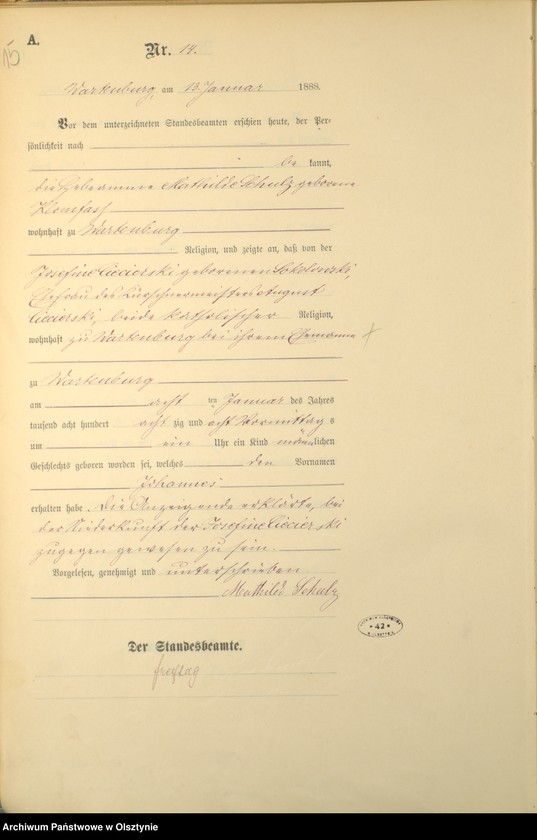 A.
15
Nr. 14.
Wartenburg, am 13 Januar 1888.
Vor dem unterzeichneten Standesbeamten erschien heute, der Per-
sönlichkeit nach
be kannt,
die Hebamme Mathilde Schulz geborene
wohnhaft zu Wartenburg
Religion, und zeigte an, daß von der
Josefine Cicierski geborenen Sokolowski,
Ehefrau des Kürschnermeisters August
Cicierski, beide katholischer Religion,
wohnhaft zu Wartenburg bei ihrem Ehemanne
zu Wartenburg
am acht ten Januar des Jahres
tausend acht hundert acht zig und acht Vormittags
um ein Uhr ein Kind männlichen
Geschlechts geboren worden sei, welches den Vornamen
Johannes
erhalten habe. Die Anzeigende erklärte, bei
der Niederkunft der Josefine Cicierski
zugegen gewesen zu sein.
Vorgelesen, genehmigt und unterschrieben
Mathilde Schulz
42
Der Standesbeamte.
Freytag
Archiwum Państwowe w Olsztynie